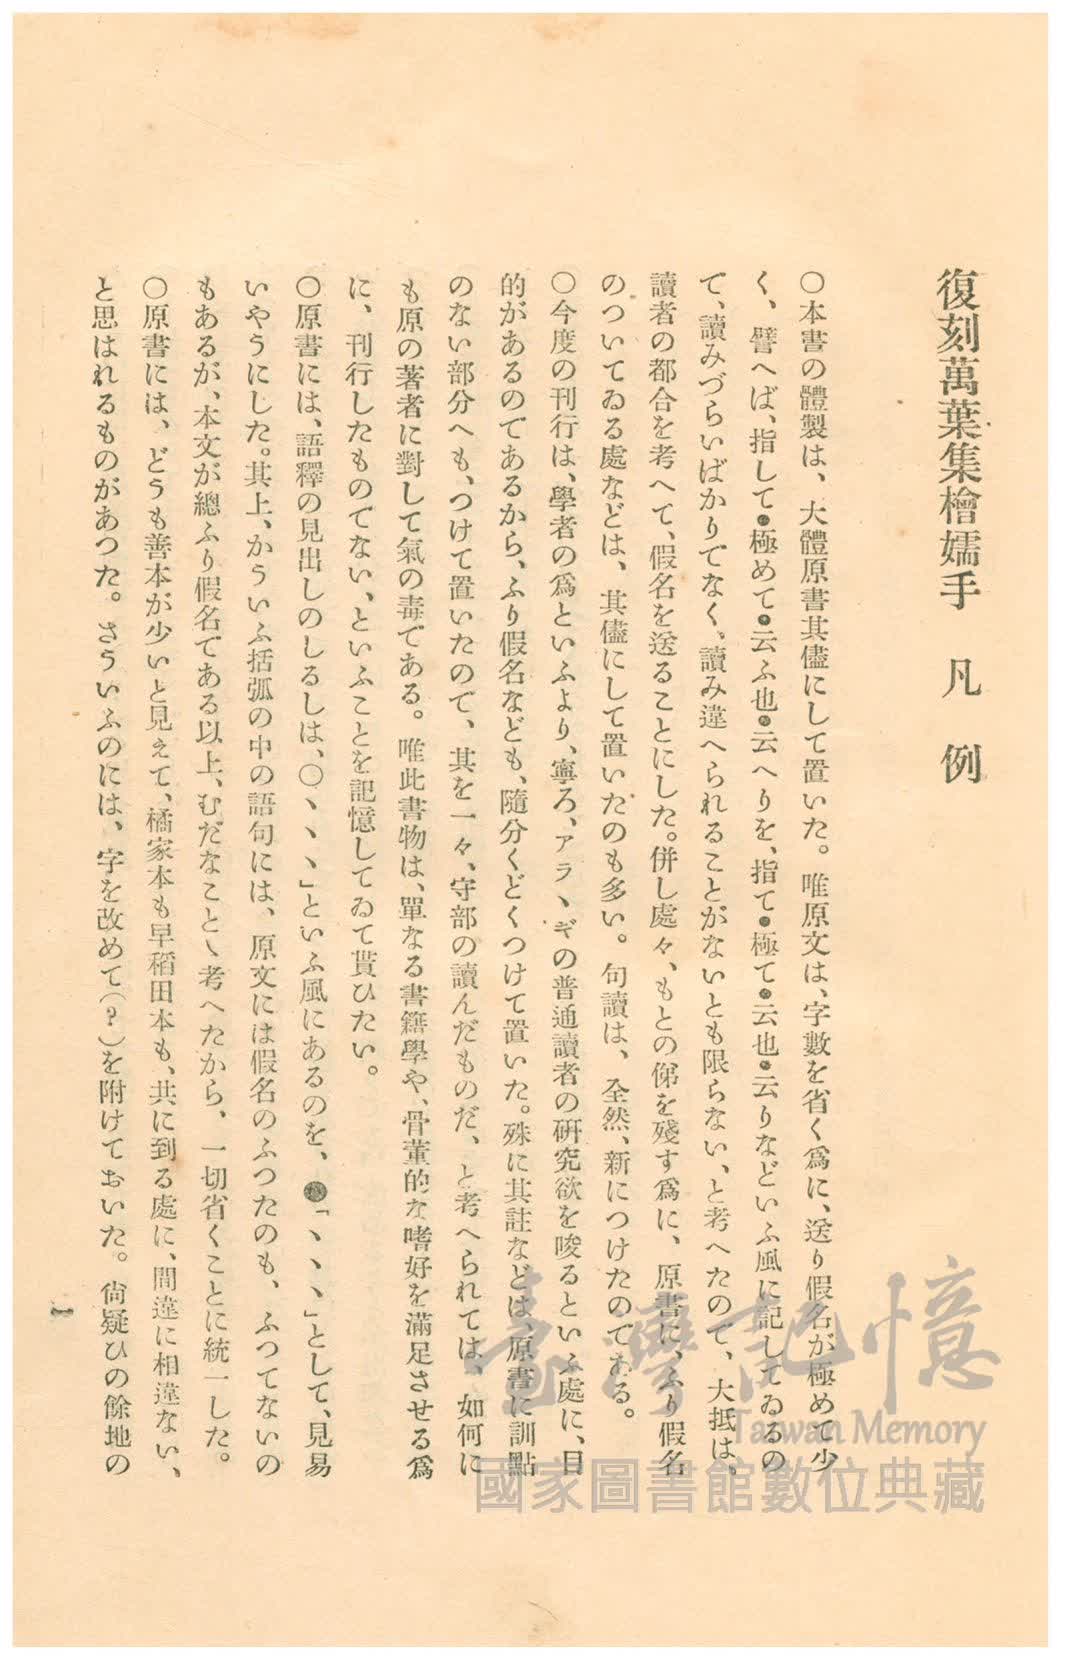 復刻萬葉集檜嬬手　凡例
〇本書の體製は、大體原書其儘にして置いた。唯原文は、字數を省く爲に、送り假名が極めて少
く、譬へば、指して・極めて・云ふ也・云へりを、指て・極て・云也・云りなどいふ風に記してゐるの
て、讀みづらいばかりでなく、讀み違へられることがないとも限らない、と考へたので、大抵は、
讀者の都合を考へて、假名を送ることにした。併し處々、もとの俤を殘す爲に、原書に、ふり假名
のついてゐる處などは、其儘にして置いたのも多い。句讀は、全然、新につけたのである。
〇今度の刊行は、學者の爲といふより、寧ろ、アラヽギの普通讀者の硏究欲を唆るといふ處に、目
的があるのであるから、ふり假名なども、隨分くどくつけて置いた。殊に其註などは、原書に訓點
のない部分へも、つけて置いたので、其を一々、守部の讀んだものだ、と考へられては、如何に
も原の著者に對して氣の毒である。唯此書物は、單なる書籍學や、骨董的な嗜好を滿足させる爲
に、刊行したものでない、といふことを記憶してゐて貰ひたい。
〇原書には、語釋の見出しのしるしは、〇ヽヽヽ」といふ風にあるのを、●「ヽヽヽ」として、見易
いやうにした。其上、かういふ括弧の中の語句には、原文には假名のふつたのも、ふつてないの
もあるが、本文が總ふり假名である以上、むだなことゝ考へたから、一切省くことに統一した。
〇原書には、どうも善本が少いと見えて、橘家本も早稻田本も、共に到る處に、間違に相違ない、
と思はれるものがあつた。さういふのには、字を改めて(?)を附けておいた。尙疑ひの餘地の
一
臺灣記憶
Taiwan Memory
國家圖書館數位典藏